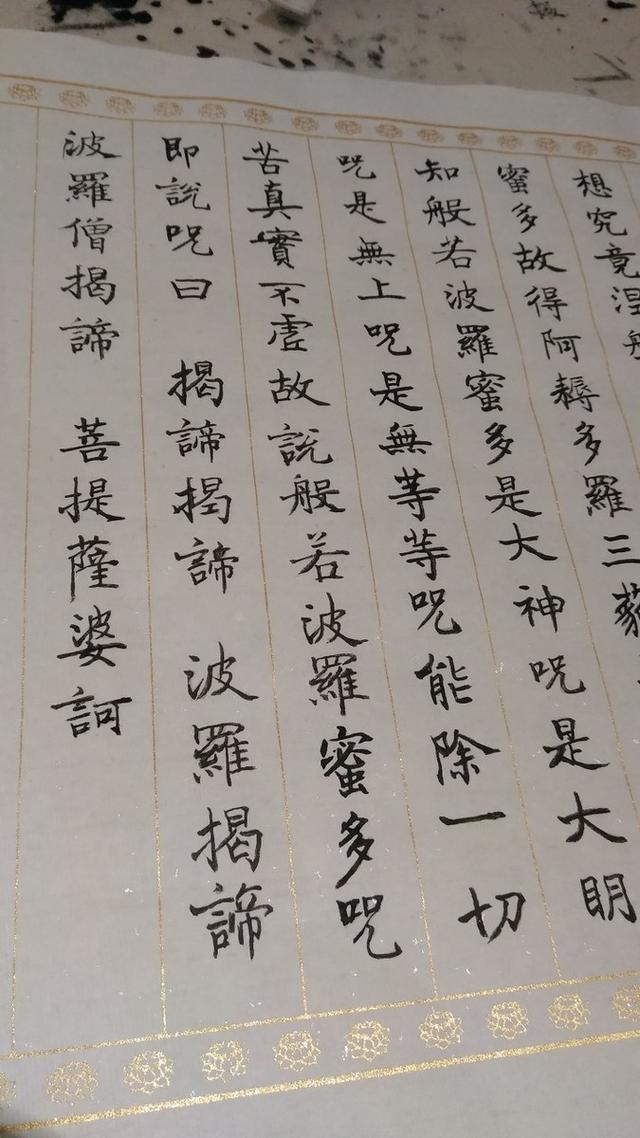 想究竟涅
蜜多故得阿耨多羅三藐
知般若波羅蜜多是大神呪是大明
呪是無上呪是無等等呪能除一切
苦真實不虛故說般若波羅蜜多呪
即說呪曰 揭諦揭諦 波羅揭諦
波羅僧揭諦 菩提薩婆訶